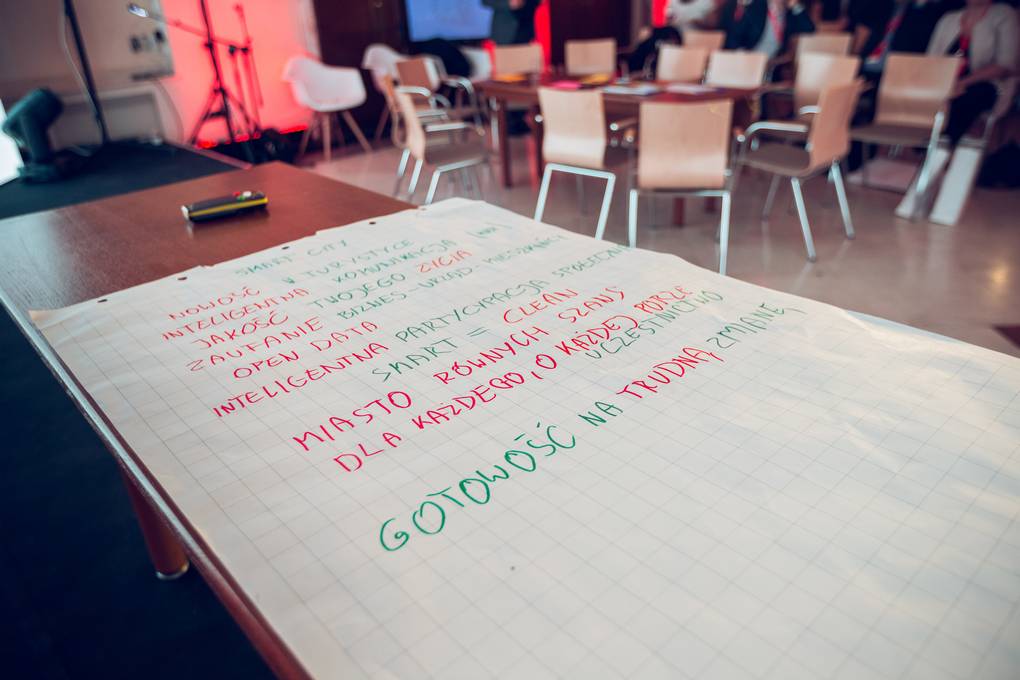 SMART CITY
NOWOŚĆ W TURYSTYCE
INTELIGENTNA KOMUNIKACJA
JAKOŚĆ TWOJEGO ŻYCIA
ZAUFANIE BIZNES-URZĄD MIESZKAŃCY
OPEN DATA
INTELIGENTNA PARTYCYPACJA SPOŁECZNA
SMART = CLEAN
MIASTO RÓWNYCH SZANS
DLA KAŻDEGO, O KAŻDEJ PORZE
UCZESTNICTWO
GOTOWOŚĆ NA TRUDNĄ ZMIANĘ